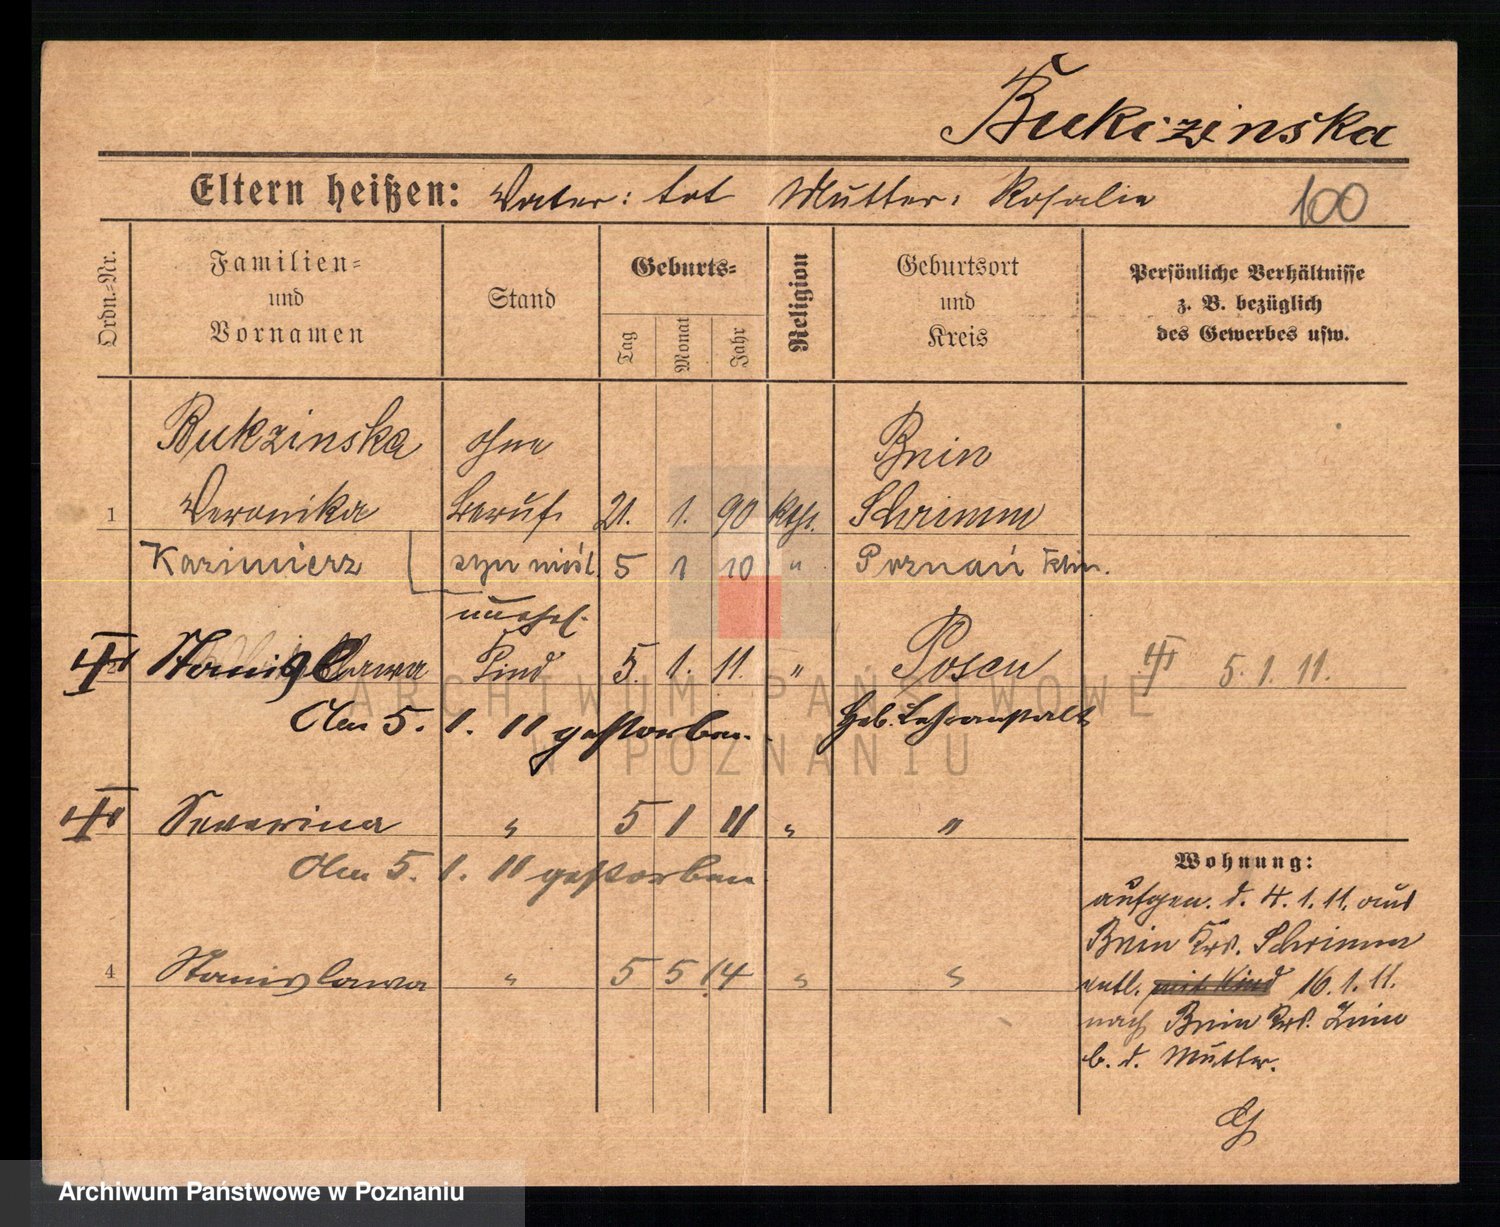 Bukczinska
Eltern heißen: Vater: tot Mutter: Rosalie 100
Ordn.-Nr.
Familien-
und
Vornamen
Stand
Geburts-
Tag
Monat
Jahr
Religion
Geburtsort
und
Kreis
Persönliche Verhältnisse
z. B. bezüglich
des Gewerbes usw.
Bukzinska ohne Bnin
1 Veronika Beruf 21. 1. 90 kth. Schrimm
Kazimierz syn nieśl. 5 1 10 " Poznań klin.
unehel.
Stanislawa Kind 5. 1. 11. " Posen 5. 1. 11.
Am 5. 1. 11 gestorben. Heb. Lehranstalt
Severina " 5 1 11 " "
Am 5. 1. 11 gestorben
4 Stanislawa " 5 5 14 " "
Wohnung:
aufgen. d. 4. 1. 11. aus
Bnin Krs. Schrimm
entl. mit Kind 16. 1. 11.
nach Bnin Krs.
b. d. Mutter.
ARCHIWUM PAŃSTWOWE
W POZNANIU
Archiwum Państwowe w Poznaniu